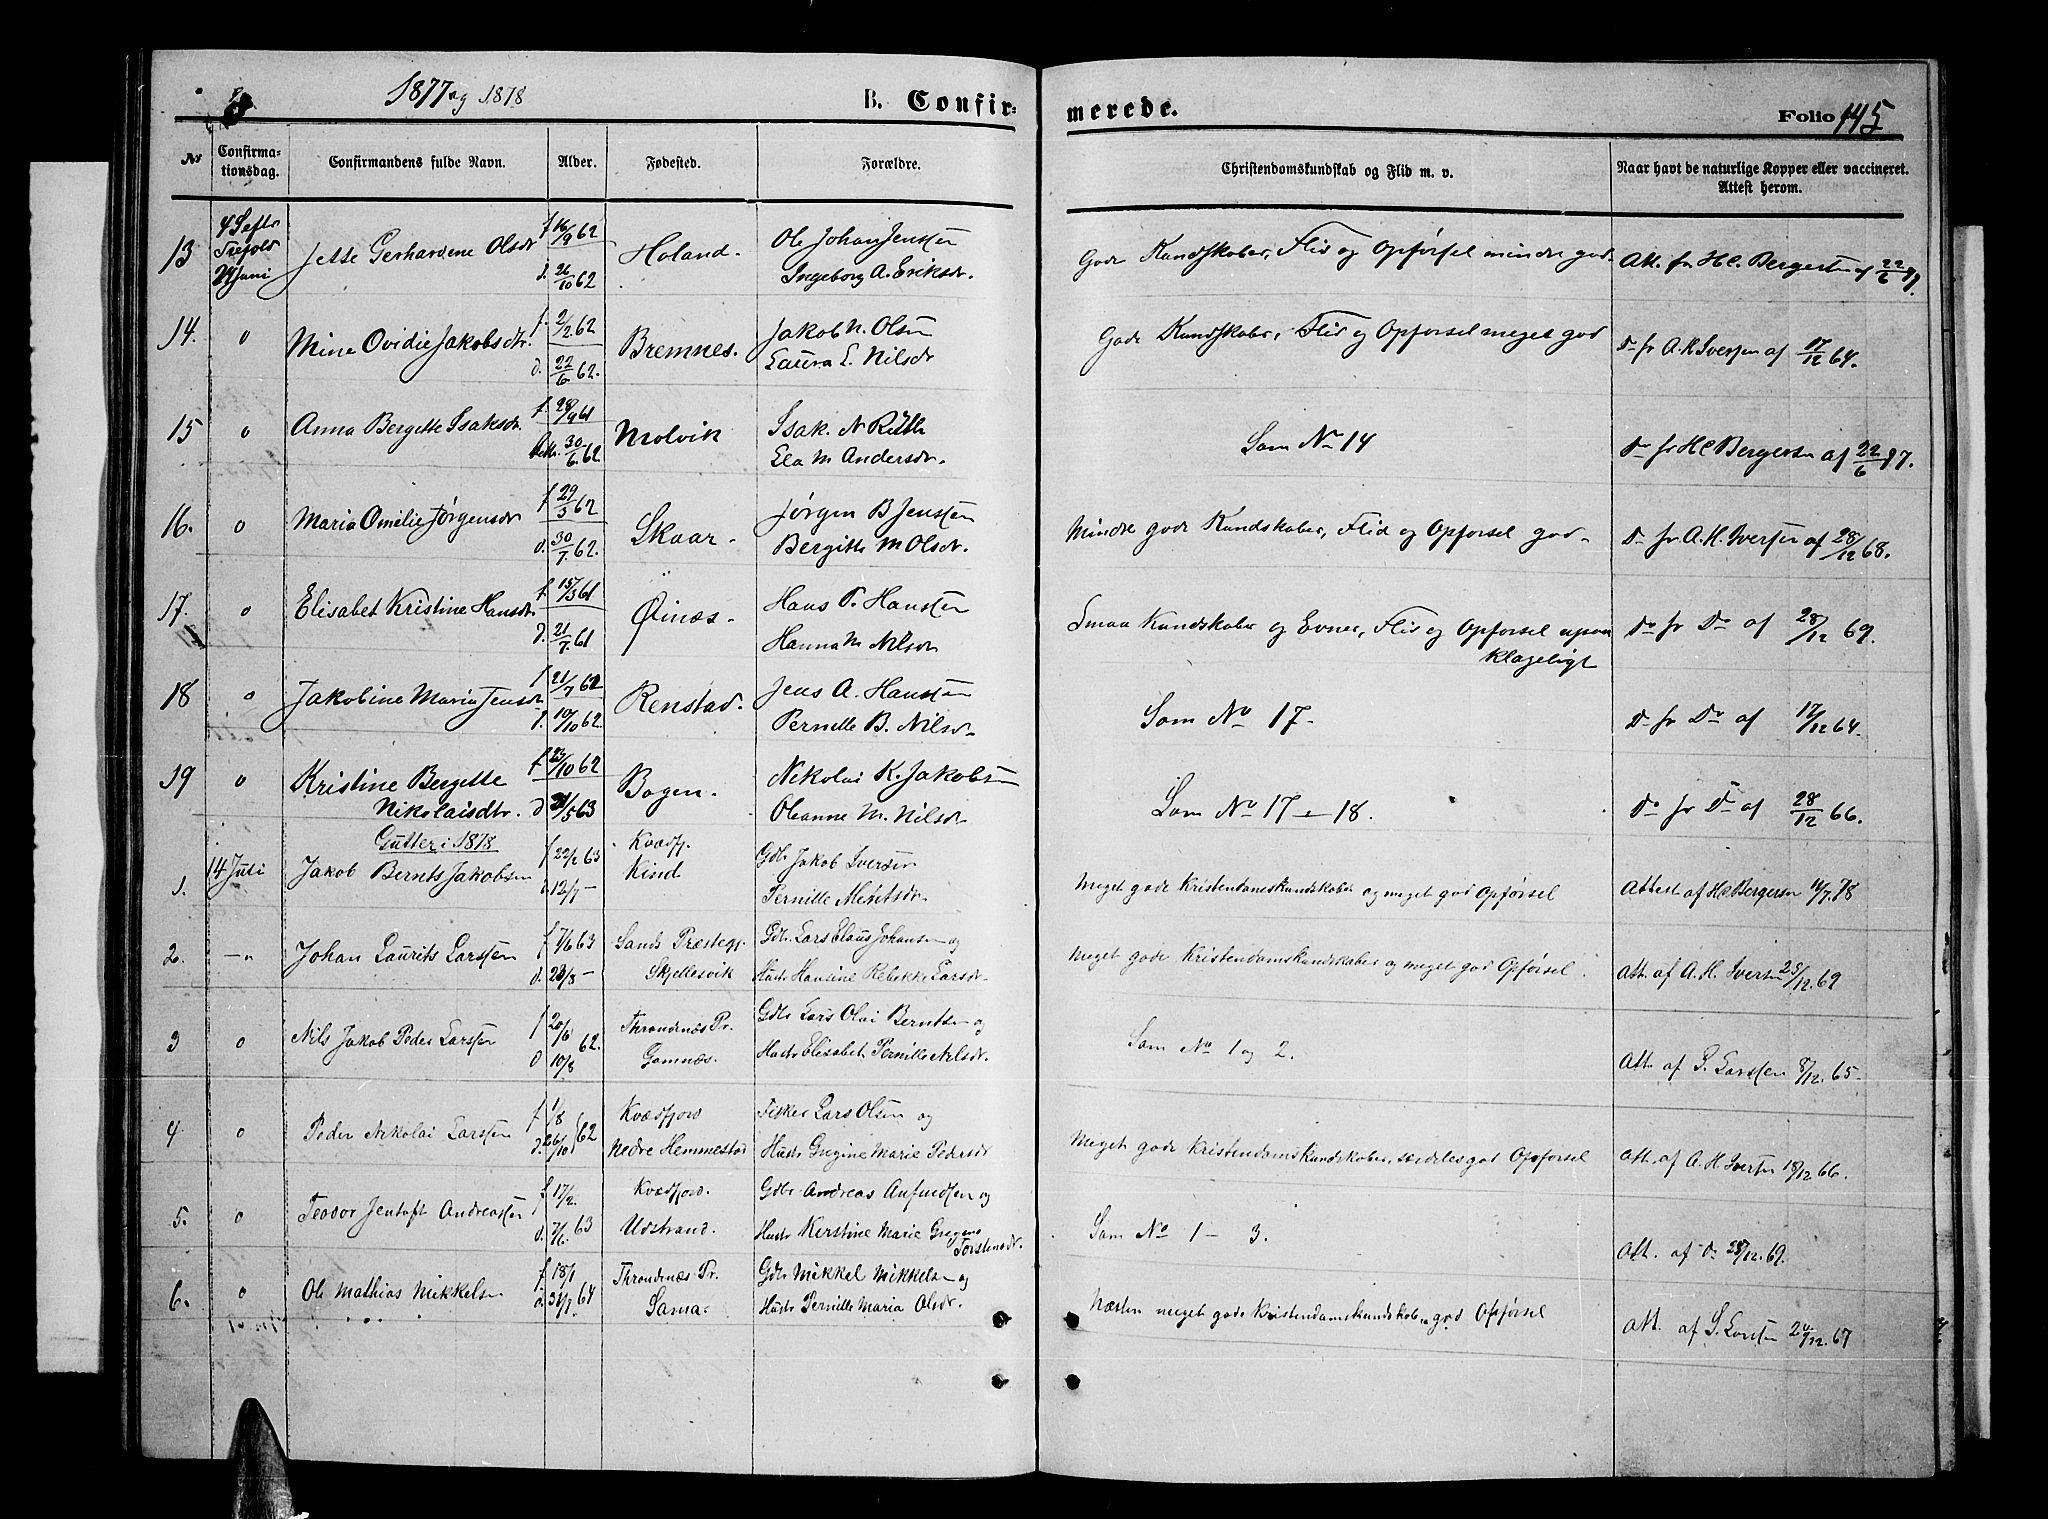 1877 og 1878
B. Confirmerede.
Folio 145
No Confirmationsdag. Confirmandens fulde Navn. Alder. Fødested. Forældre. Christendomskundskab og Flid m. v. Naar havt de naturlige Kopper eller vaccineret. Attest herom.
4 Septr f. 16/9 62 Ole Johan Jenssen
13 Jette Gerhardine Olsdr Holand. Gode Kundskaber, Flid og Opførsel mindre god Att. fr H C. Bergersen af 22/6 77.
Juni d. 26/10 62 Ingeborg A. Eriksdr.
f. 2/2 62 Jakob N. Olsen
14. o Mine Ovidie Jakobsdtr. Bremnes. Gode Kundskaber, Flid og Opførsel meget god Do fr A. H. Iversen af 17/12 64.
d. 22/6 62. Laura E. Nilsdr
f. 28/9 61 Isak. N
15 o Anna Bergitte Isaksdr. Molvik Som No 14 Do fr H C Bergersen af 22/6 77.
30/6 62 M Andersdr.
f 29/3 62 Jørgen B Jenssen
16. o Maria Omelie Jørgensdr Skaar. Mindre gode Kundskaber, Flid og Opførsel god. Do fr A. H. Iversen af 28/12 68.
d. 30/7 62. Bergitte M Olsdr.
f. 15/3 61 Hans P. Hanssen
17. o Elisabet Kristine Hansdr Øinæs. Smaa Kundskaber og Evner, Flid og Opførsel upaa Do fr Do af 28/12 69.
klageligt
d. 21/7 61 Hanna M Nilsdr
f 21/7 62 Jens A. Hanssen
18 o Jakobine Maria Jensdr Renstad. Som No 17. Do fr Do af 17/12 64.
d. 19/10 62. Pernille B. Nilsdr.
f 23/10 62 Nikolai K. Jakobsen
19 o Kristine Bergette Bogen. Som No 17 – 18. Do fr Do af 28/12 66.
Nikolaisdtr. d 31/5 63 Oleanne M. Nilsdr
Gutter i 1878
f 22/2 63 Kvædfj. Gdbr Jakob Iversen
1. 14 Juli Jakob Bernts Jakobsen Kind Meget gode Kristendomskundskaber og meget god Opførsel Attest af H C Bergersen 11/7. 78
d. 12/7 — Pernille
f 7/6 63 Sands Præstegj. Gdbr Lars Claus Johansen og
2. —"— Johan Laurits Larssen Meget gode Kristendomskundskaber og meget god Opførsel. Att. af A. H. Iversen 28/12. 69
d. 23/8 — Skjellesvik Hustr Hansine Rebekke Larsdr.
f 20/6 Throndenæs Pr. Gdbr Lars Olai Berntsen og
3 o Nils Jakob Peder Larssen 62. Som No 1 og 2. Att. af S. Larssen 8/12. 65.
d 10/8 Gamnæs. Hustr Elisabet Pernille Nilsdr.
f. 1/8 Kvædfjord Fisker Lars Olsen og
4 o Peder Nikolai Larssen 62 Meget gode Kristendomskundskaber, særdeles god Opførsel Att. af A. H Iversen 18/12 66.
d. 26/10 Nedre Hemmestad Hustr Gregine Marie Pedersdr
f. 17/2. Kvædfjord. Gdbr. Andreas Anfindsen og
5. o Teodor Jentoft Andreassen Som No 1 – 3.
d. 7/6. 63 Udstrand. Hustr Kerstine Marie Gregine Torstensdr. Att. af Do 28/12. 69.
f. 18/1 Throndenæs Pr. Gdbr Mikkel Mikkelsen og
6. o Ole Mathias Mikkelsen 64 Næsten meget gode Kristendomskundskab. god Opførsel Att. af S. Larssen 20/12. 67
d. 31/7. Sama. Hustr Pernille Maria Olsdr.